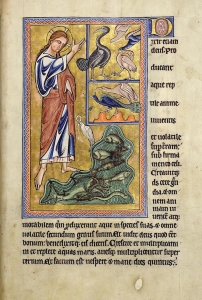 D
ixit etiam
deus pro
ducant
aque rep
tile anime
viventis
et volatile
sup terram:
sub firma
mento celi.
Creavitq;
ds cete gran
dia. & om
nem ani
mam vi
ventem atq;
motabilem qm pduxerant aque in species suas. & omne
volatile secundum genus suum. Et vidit deus quod eet
bonum: benedixitq; eis dicens. Crescite et multiplicami
ni et replete aquas maris. avesq; multiplicentur super
terram. Et factum est vespere & mane dies quintus.